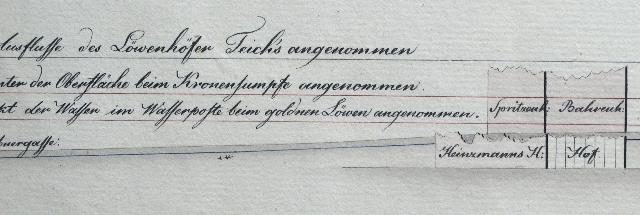 Ausflusse des Löwenhöfer Teich's angenommen
unter der Oberfläche beim Kronensumpfe angenommen.
der Wasser im Wasserposte beim goldnen Löwen angenommen.
Spritzenh: Bahrenh:
Heinzmanns H: Hof